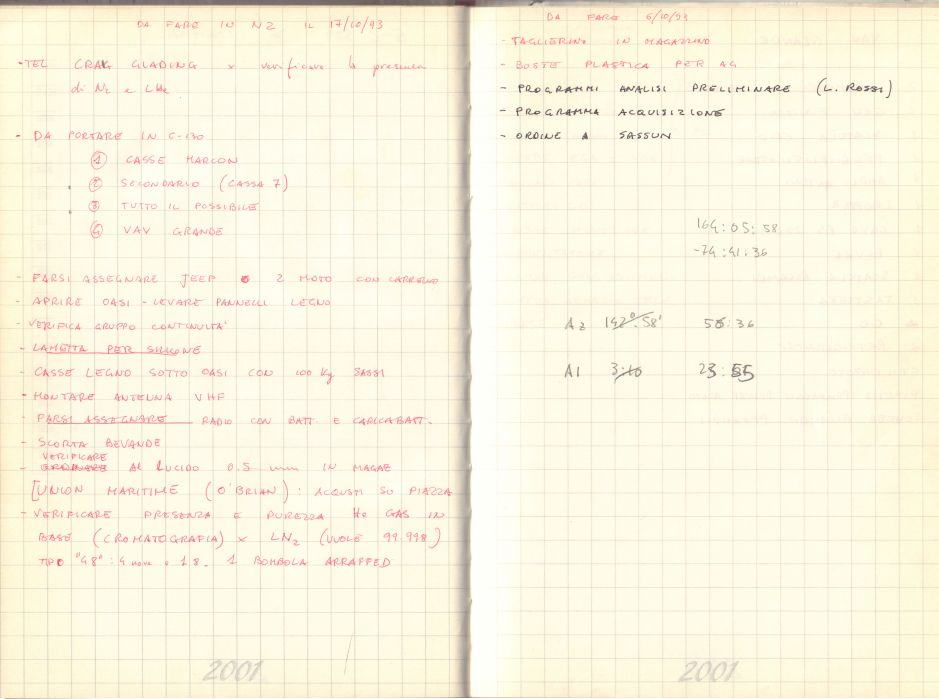 DA FARE IN NZ IL 17/10/93
- TEL CRAIG GLADING x verificare la presenza
di N2 e LHe
- DA PORTARE IN C-130
① CASSE MARCON
② SECONDARIO (CASSA 7)
③ TUTTO IL POSSIBILE
④ VAV GRANDE
- FARSI ASSEGNARE JEEP o 2 MOTO CON CARRELLO
- APRIRE OASI - LEVARE PANNELLI LEGNO
- VERIFICA GRUPPO CONTINUITA'
- LAMETTA PER SILICONE
- CASSE LEGNO SOTTO OASI CON 100 Kg SASSI
- MONTARE ANTENNA VHF
- FARSI ASSEGNARE RADIO CON BATT. E CARICABATT.
- SCORTA BEVANDE
VERIFICARE
- ORDINARE Al LUCIDO 0.5 mm IN MAGAZ
[UNION MARITIME (O'BRIAN) : ACQUSTI SU PIAZZA
- VERIFICARE PRESENZA E PUREZZA He GAS IN
BASE (CROMATOGRAFIA) x LN2 (VUOLE 99.998)
TIPO "48" : 4 nove e 1 8. 1 BOMBOLA ARRAFFED
2001
DA FARE 6/10/93
- TAGLIERINO IN MAGAZZINO
- BUSTE PLASTICA PER AG
- PROGRAMMI ANALISI PRELIMINARE (L. ROSSI)
- PROGRAMMA ACQUISIZIONE
- ORDINE A SASSUN
164:05:58
-74:41:36
Az 142°.58' 56:36
Al 3:10 23:55
2001